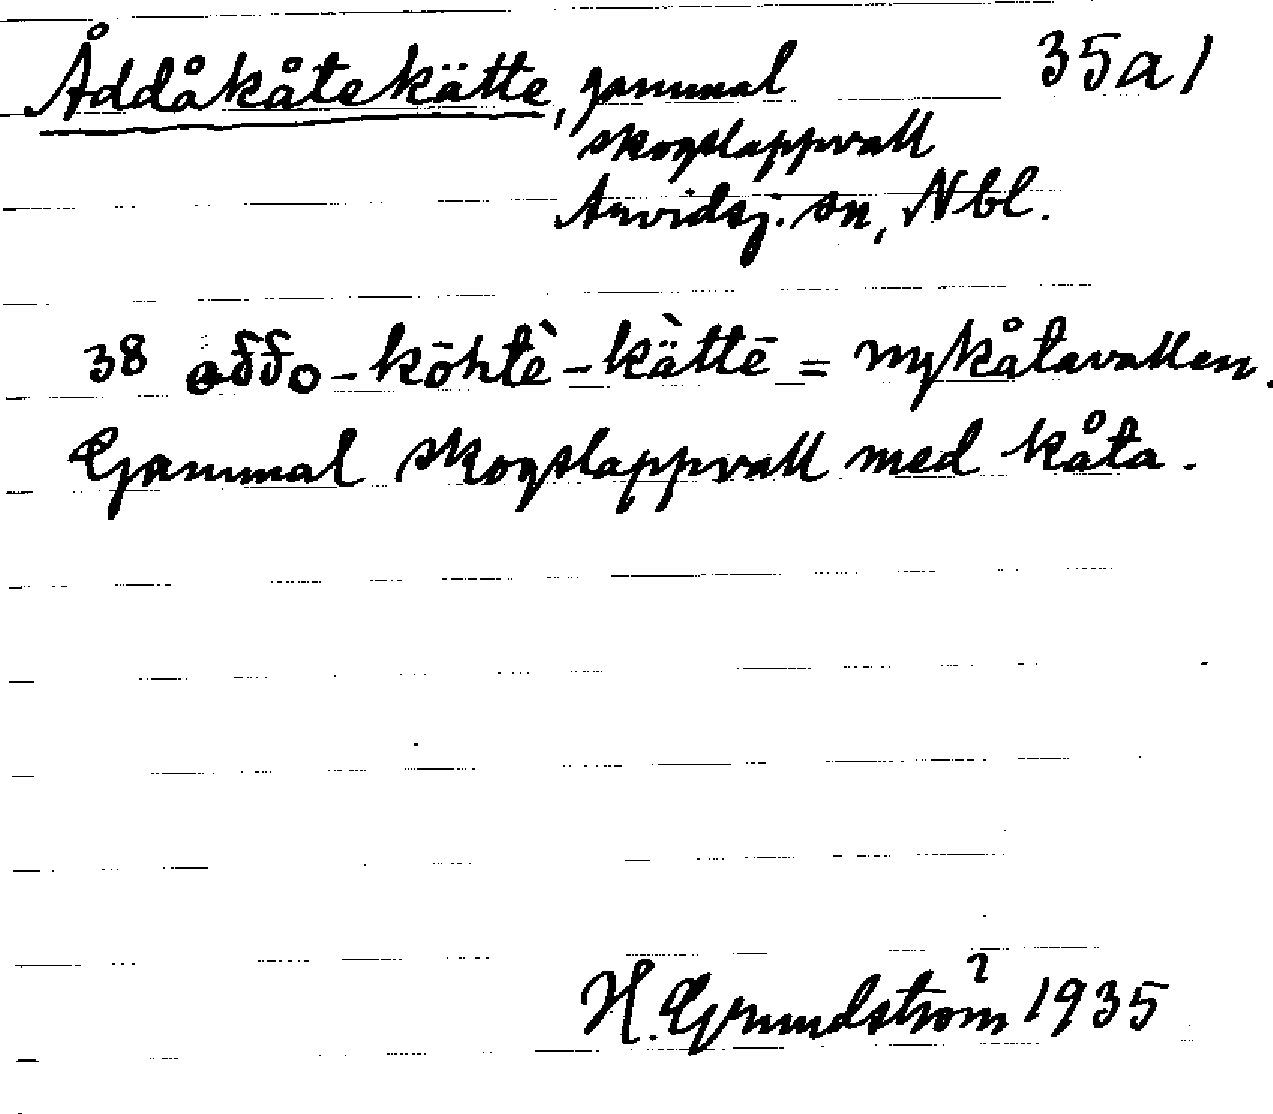 Åddåkåtekätte, gammal 35a1
skogslappvall
Arvidsj. sn, Nbl.
38 oδδo-kōhtḕ-kä̀ttē = nykåtavallen.
Gammal skogslappvall med kåta.
H. Grundström 1935